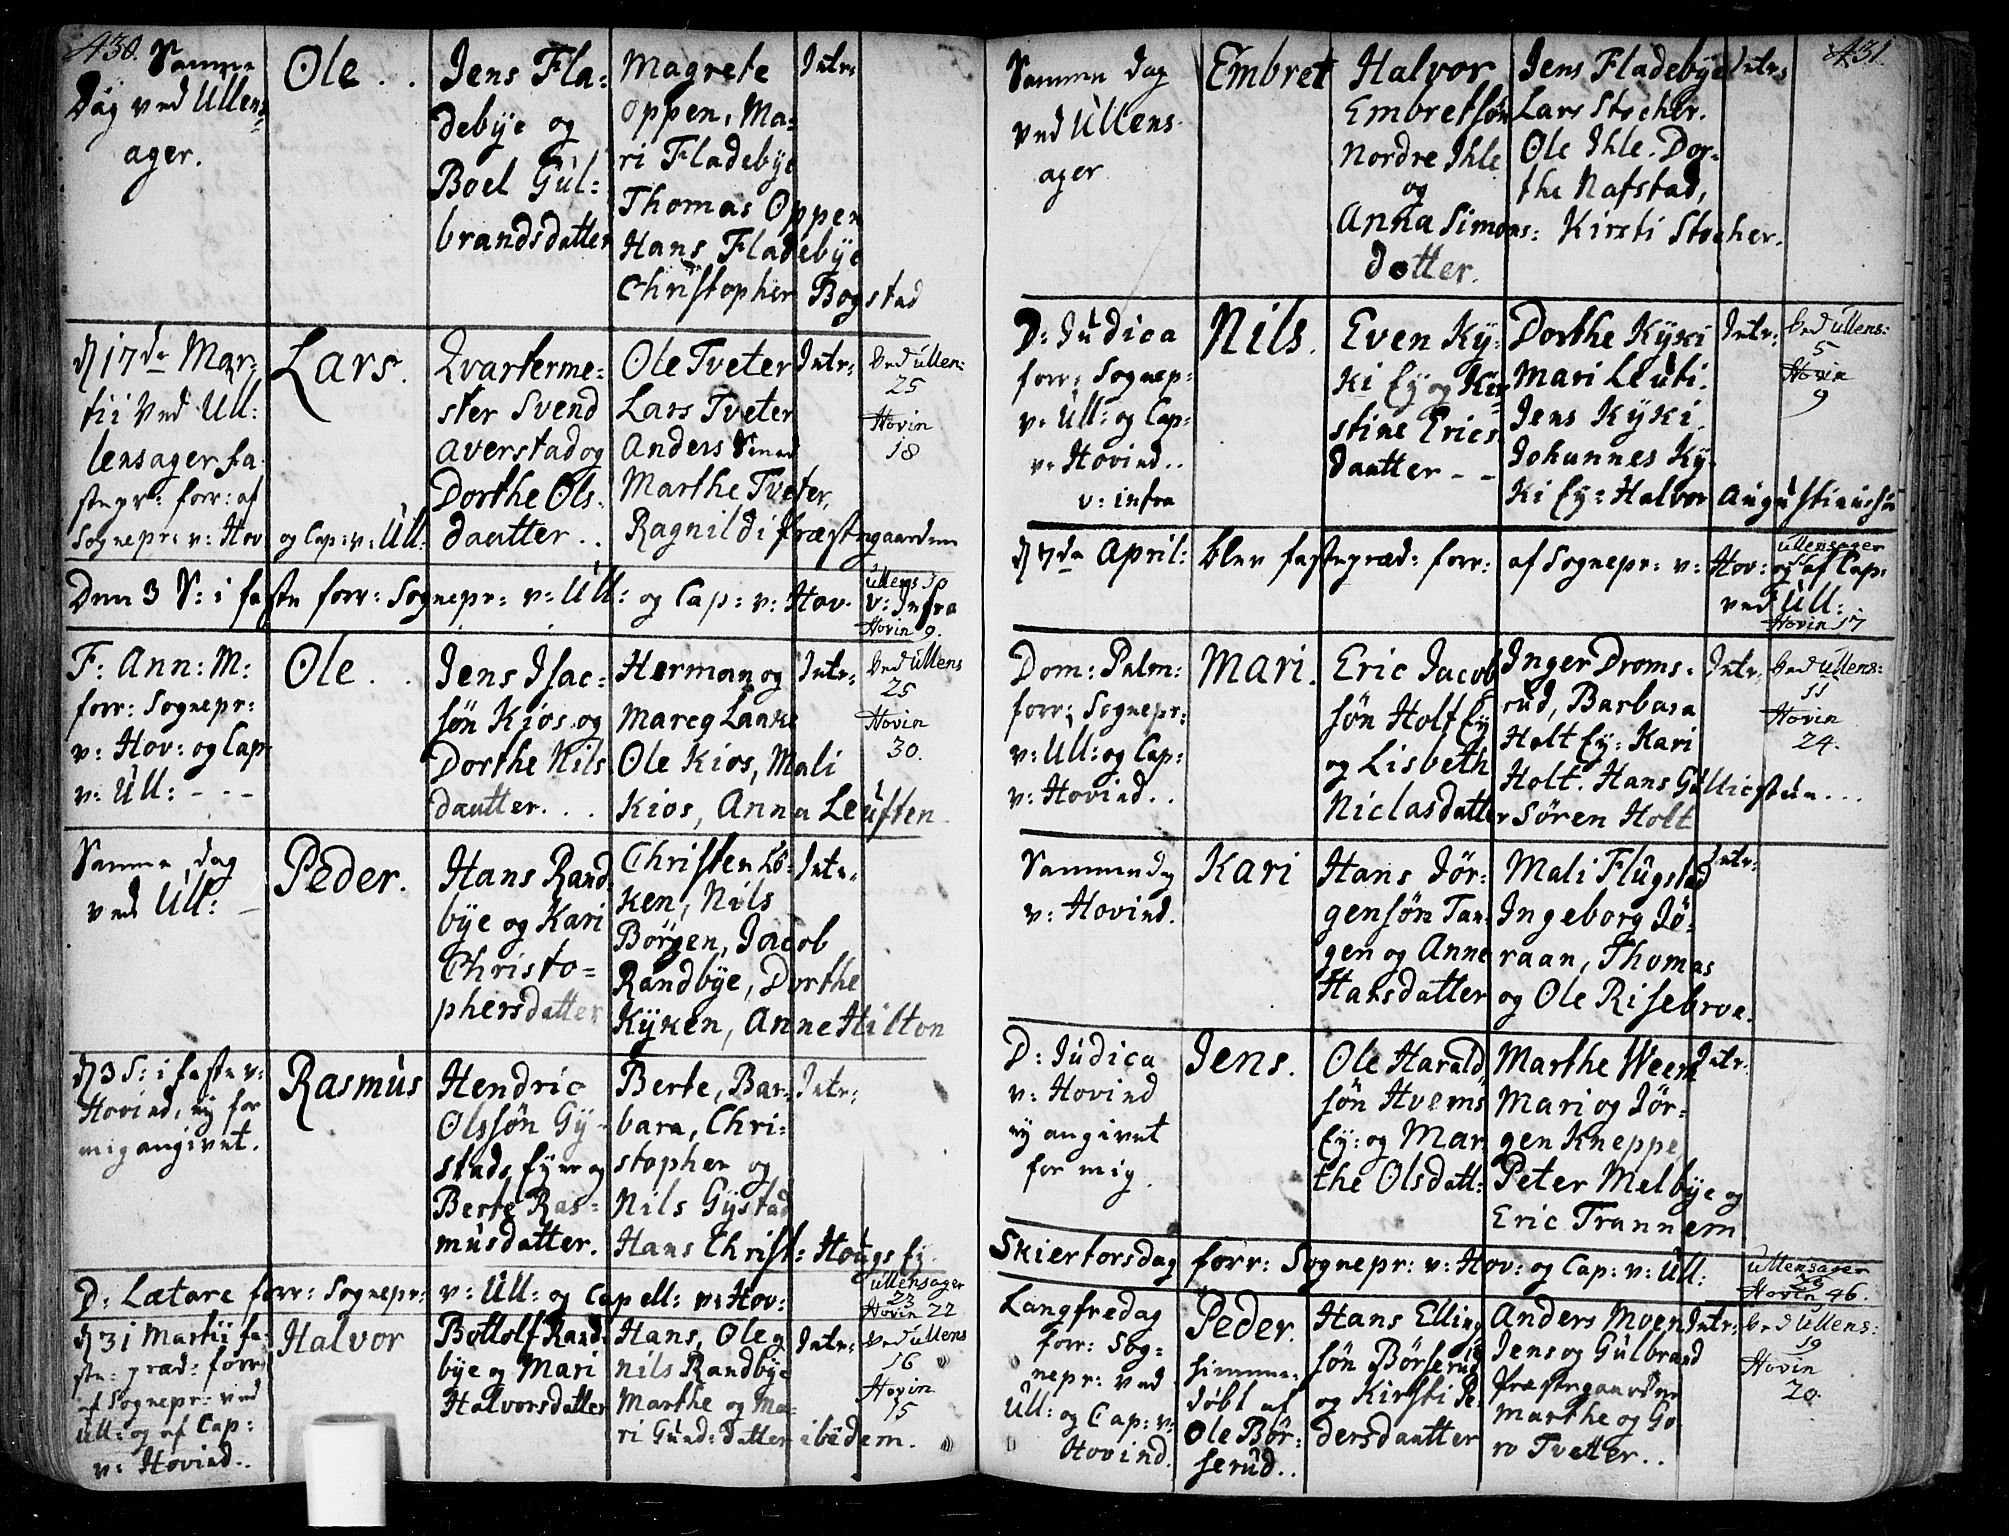 430. Samme
Dag ved Ullens=
ager.
Ole . .
Jens Fla=
debÿe og
Boel Gul=
brandsdatter
Magrete
Oppen, Ma=
ri Fladebÿe
Thomas Oppen
Hans Fladebÿe
Christopher Bogstad
Intr:
d 17de Mar=
tii Ved Ull:
lensager fa
stepr: forr: af
Sognepr: v: Hov og Cap: v: Ull:
Lars.
Qvarterme=
ster Svend
Averstad og
Dorthe Ols.
daatter . .
Ole Tveter
Lars Tveter
Anders
Marthe Tveter,
Ragnild i Præstegaarden
Intr:
Ved Ullen:
25
Hovin
18
Den 3 S: i faste forr: Sognepr: v: Ull: og Cap: v: Hov.
Ullens 10
v: Infra
Hovin 9.
F: Ann: M:
forr: Sognepr:
v: Hov: og Cap
v: Ull: - - -
Ole . .
Jens Isac=
søn Kios og
Dorthe Nils
daatter. . .
Herman og
Mareg Laake
Ole Kios, Mali
Kios, Anna Leuften
Intr:
Ved Ullens
25
Hovin
30.
Samme dag
ved Ull: -
Peder.
Hans Rand
bÿe og Kari
Christo=
phersdatter
Christen Lö=
ken, Nils
Börgen, Jacob
Randbÿe, Dorthe
Kÿken, Anne Hilton
Intr:
d 3 S: i faste v:
Hovind, ej for
mig angivet.
Rasmus
Hendric
Olssøn Gÿ
stads Ejer og
Berte Ras=
musdatter.
Berte, Bar=
bara, Chri=
stopher og
Nils Gÿstad
Hans Christ: Hougs Ej.
Intr:
D: Lætare forr: Sognepr: v: Ull: og Capell: v: Hov:
Ullensager
23
Hovin 22
d 31 Martii fa=
ste præd: forr
af Sognepr: ved
Ull: og af Cap:
v: Hovind..
Halvor
Bottolf Rand=
bÿe og Mari
Halvorsdatter
Hans, Ole og
Nils Randbÿe
Marthe og Ma=
ri Gund: datter ibidem.
Intr:
Ved Ullens
16
Hovin
15
431.
Samme dag
ved Ullens
ager
Embret
Halvor
Embretsøn
Nordre Ihle
og
Anna Simons:
datter.
Jens Fladebÿe
Lars Stocher.
Ole Ihle. Dor=
the Nafstad,
Kirsti Stocher.
Intr:
D: Judica
forr: Sognep:
v: Ull: og Cap:
v: Hovind..
v: infra
Nils.
Even Kÿ=
ki Ej og Kir
stine Erics
daatter - -
Dorthe Kÿki
Mari Leuti.
Jens Kÿki.
Johannes Kÿ=
ki Ej: Halvor Augustinussøn
Intr:
Ved Ullens:
5
Hovin
9
d 7de April: blev fastepræd: forr: af Sognepr: v: Hov: og af Cap:
ved Ull:
Ullensager
Hovin 17
Dom: Palm:
forr: Sognepr:
v: Ull: og Cap:
v: Hovind..
Mari.
Eric Jacob
søn Holt Ej
og Lisbeth
Niclasdatter
Inger Droms=
rud, Barbara
Holt Ej: Kari
Holt. Hans Gullicstun...
Søren Holt
Intr:
Ved Ullens:
11
Hovin
24.
Samme dag
v: Hovind.
Kari
Hans Jör=
gensøn Tan=
gen og Anne
Hansdatter
Mali Flugstad
Ingeborg Jö=
raan, Thomas
og Ole Risebroe.
Intr:
D: Judica
v: Hovind
ej angivet
for mig.
Jens.
Ole Harald
søn Hvems
Ej: og Mar
the Olsdatt:
Marthe Weem
Mari og Jör=
gen Kneppe,
Peter Melbÿe og
Eric Trannem
Intr:
Skiertorsdag forr: Sognepr: v: Hov: og Cap: v: Ull:
Ullensager
Hovin 46.
Langfredag
forr: Sog=
nepr: ved
Ull: og Cap: v:
Hovind.
Peder.
himme=
döbt af
Ole Bör=
serud..
Hans Elling
søn Börserud
og Kirsti Pe
dersdaatter
Anders Moen
Jens og Gulbrand
Præstegaarden
Marthe og Go=
ro Tvetter..
Intr:
Ved Ullens:
19
Hovin
20.